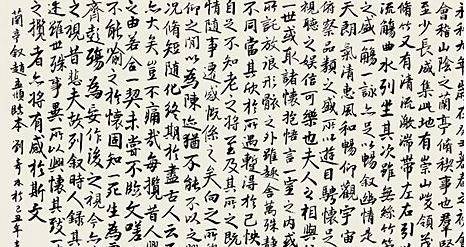 永和九年歲在癸丑暮春
會稽山陰之蘭亭脩稧事也羣賢
至少長咸集此地有崇山峻領
脩竹又有清流激湍帶左右引以
流觴曲水列坐其次雖無絲竹管
之盛觴一詠亦足以暢敘幽情是
天朗氣清惠風和暢仰觀宇宙
俯察品類之盛所以遊目騁懷足
視聽之娛信可樂也夫人之相與
一世或取諸懷抱悟言一室之內
所託放浪形骸之外雖趣舍萬殊靜
不同當其欣於所遇暫得於己快
自足不知老之將至及其所之既
情隨事遷感慨係之矣向之所
仰之間以為陳迹猶不能不以之
況脩短隨化終期於盡古人云死
亦大矣豈不痛哉每攬昔人興
之由若合一契未嘗不臨文嗟
不能喻之於懷固知一死生為
齊彭殤為妄作後之視今亦
之視昔悲夫故列敘時人錄其
述雖世殊事異所以興懷其致一
之攬者亦將有感於斯文
蘭亭敘趙孟頫臨本